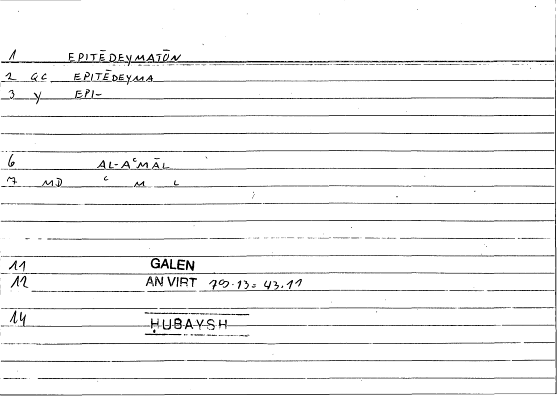 1 EPITĒDEYMATŌN
2 GC EPITĒDEYMA
3 Y EPI-
6 AL-AʿMĀL
7 MD ʿ M L
11 GALEN
12 AN VIRT 79.13= 43.11
14 ḤUBAYSH